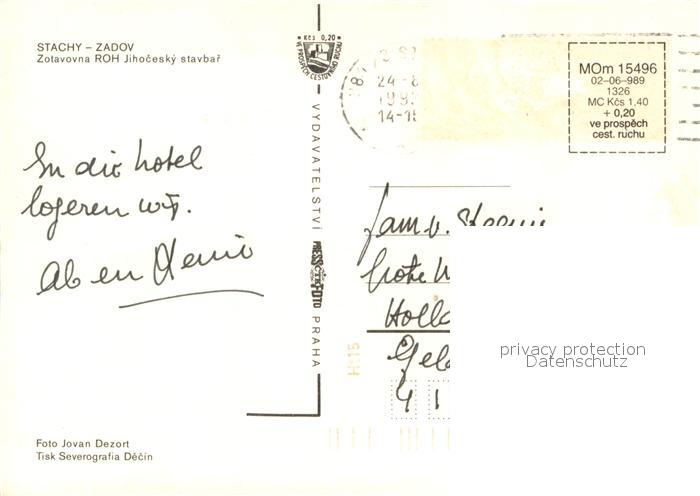 STACHY – ZADOV
Zotavovna ROH Jihočeský stavbař
Kčs 0,20
VE PROSPĚCH CESTOVNÍHO RUCHU
24-8
14-15
MOm 15496
02–06–989
1326
MC Kčs 1,40
+ 0,20
ve prospěch
cest. ruchu
In dit hotel
logeren wij.
VYDAVATELSTVÍ PRESSFOTO PRAHA
Ab en
Fam. v.
Grote
Holl
Gel
4 1
H:15
privacy protection
Datenschutz
Foto Jovan Dezort
Tisk Severografia Děčín